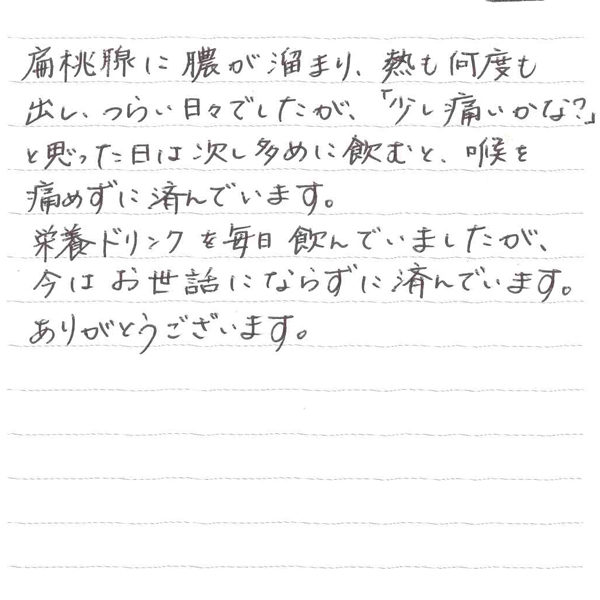 扁桃腺に膿が溜まり、熱も何度も
出し、つらい日々でしたが、「少し痛いかな?」
と思った日は次し多めに飲むと、喉を
痛めずに済んでいます。
栄養ドリンクを毎日飲んでいましたが、
今はお世話にならずに済んでいます。
ありがとうございます。